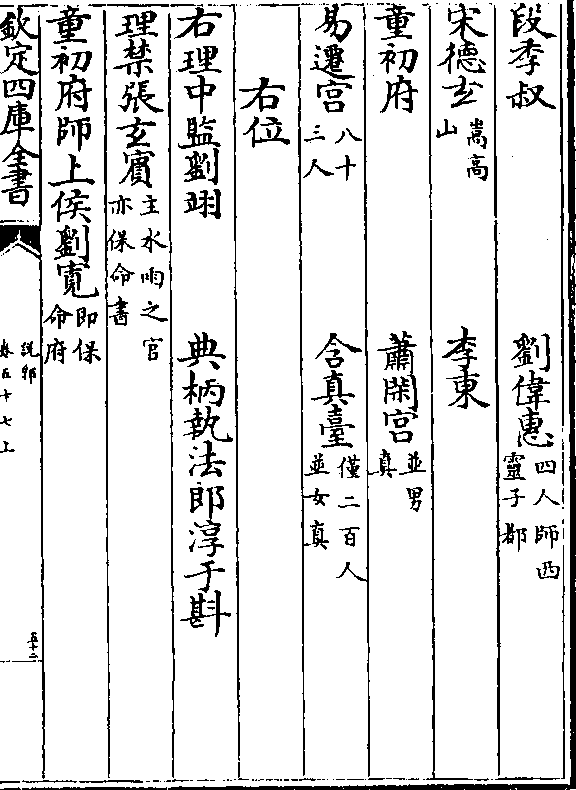 段季叔　劉偉惠四人師西靈子都
宋德玄嵩高山　李東
童初府　蕭閑宮並男真
易遷宮八十三人　含真臺僅二百人並女真
右位
右理中監劉翊　典柄執法郎淳于斟
理禁張玄賓主水雨之官亦保命書
童初府師上侯劉寬即保命府
欽定四庫全書　說郛卷五十七上　五十二